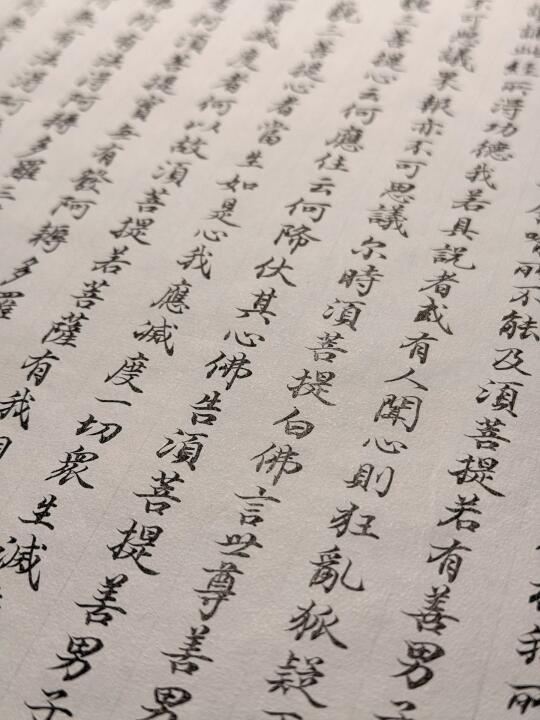 我所
喻所不能及須菩提若有善男子
誦此經所得功德我若具說者或有人聞心則狂亂狐疑不
不可思議果報亦不可思議尔時須菩提白佛言世尊善男
三菩提心云何應住云何降伏其心佛告須菩提善男子
藐三菩提心者當生如是心我應滅度一切衆生滅
實滅度者何以故須菩提若菩薩有我相
者何須菩提實无有發阿耨多羅
有法得阿耨多羅三